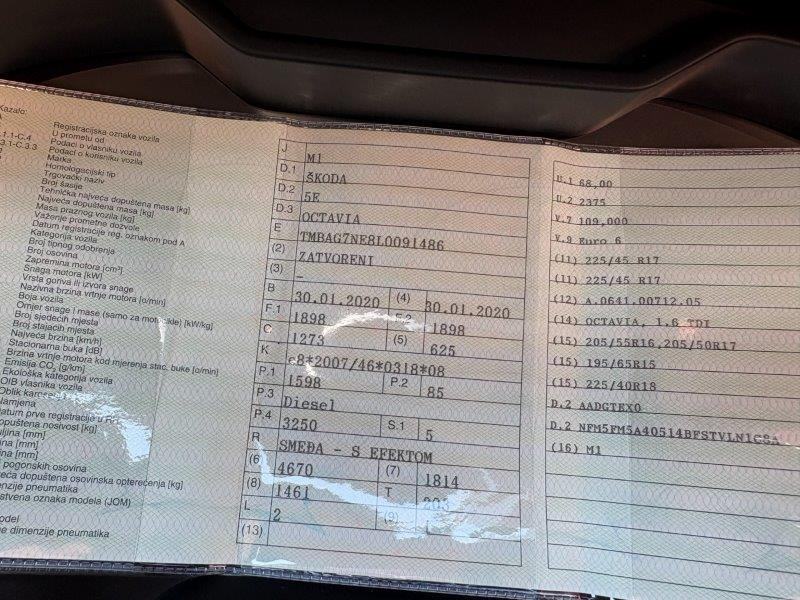 Kazalo:
Registracijska oznaka vozila
U prometu od
1.1-C.4 Podaci o vlasniku vozila
3.1-C.3.3 Podaci o korisniku vozila
Marka
Homologacijski tip
Trgovački naziv
Broj šasije
Tehnička najveća dopuštena masa [kg]
Najveća dopuštena masa [kg]
Masa praznog vozila [kg]
Važenje prometne dozvole
Datum registracije reg. oznakom pod A
Kategorija vozila
Broj tipnog odobrenja
Broj osovina
Zapremina motora [cm³]
Snaga motora [kW]
Vrsta goriva ili izvora snage
Nazivna brzina vrtnje motora [o/min]
Boja vozila
Omjer snage i mase (samo za motocikle) [kW/kg]
Broj sjedećih mjesta
Broj stajaćih mjesta
Najveća brzina [km/h]
Stacionarna buka [dB]
Brzina vrtnje motora kod mjerenja stac. buke [o/min]
Emisija CO₂ [g/km]
Ekološka kategorija vozila
OIB vlasnika vozila
Oblik
Namjena
datum prve registracije u
opuštena nosivost [kg]
[mm]
ina [mm]
ina [mm]
pogonskih osovina
eća dopuštena osovinska opterećenja [kg]
enzije pneumatika
stvena oznaka modela (JOM)
odel
e dimenzije pneumatika
J M1
D.1 ŠKODA
D.2 5E
D.3 OCTAVIA
E TMBAG7NE8L0091486
(2) ZATVORENI
(3) –
B 30.01.2020 (4) 30.01.2020
F.1 1898 F.2 1898
G 1273 (5) 625
K e8*2007/46*0318*08
P.1 1598 P.2 85
P.3 Diesel
P.4 3250 S.1 5
R SMEĐA - S EFEKTOM
(6) 4670 (7) 1814
(8) 1461 T 203
L 2 (9) 1
(13)
U.1 68,00
U.2 2375
V.7 109,000
V.9 Euro 6
(11) 225/45 R17
(11) 225/45 R17
(12) A.0641.00712.05
(14) OCTAVIA, 1.6 TDI
(15) 205/55R16,205/50R17
(15) 195/65R15
(15) 225/40R18
D.2 AADGTEX0
D.2 NFM5FM5A40514BFSTVLN1C8A
(16) M1